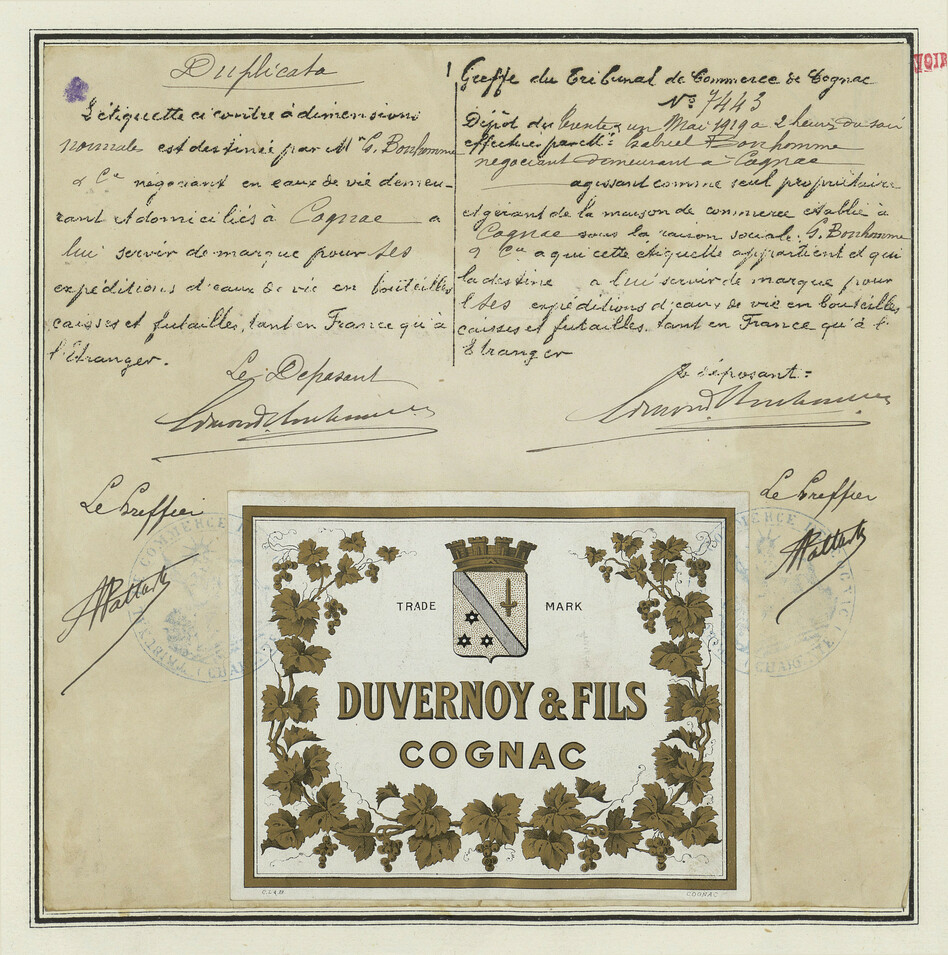 Duplicata
L'étiquette ci contre à dimensions
normale est destinée par Mr G. Bonhomme
& Cie négociant en eaux de vie demeu-
rant et domiciliés à Cognac a
lui servir de marque pour ses
expéditions d'eaux de vie en bouteilles
caisses et futailles, tant en France qu'à
l'étranger.
Le Déposant
Le Greffier
Greffe du Tribunal de Commerce de Cognac
No 7443
Dépôt du trente un Mai 1919 a 2 heures du soir
effectué par Mr Gabriel Bonhomme
négociant demeurant à Cognac
agissant comme seul propriétaire
et gérant de la maison de commerce établie à
Cognac sous la raison sociale G. Bonhomme
& Cie a qui cette étiquette appartient et qui
la destine a lui servir de marque pour
ses expéditions d'eaux de vie en bouteilles
caisses et futailles, tant en France qu'à l'
Etranger
Le déposant =
Le Greffier
VOIR
TRADE MARK
DUVERNOY & FILS
COGNAC
COGNAC